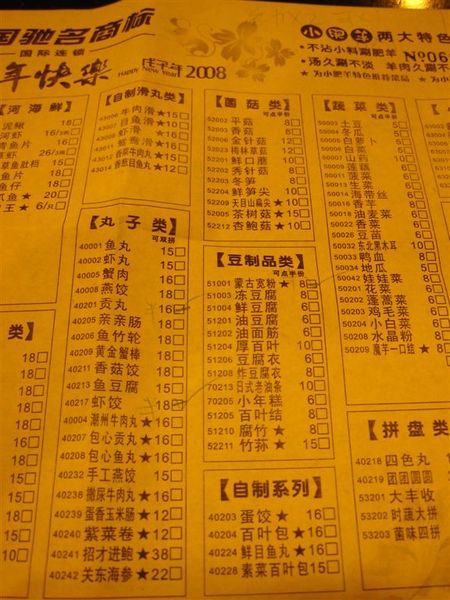 国驰名商标
国际连锁
年快樂
Happy New Year
戊子年2008
小肥羊两大特色
·不沾小料涮肥羊 №06
·汤久涮不淡 羊肉久涮不
★为小肥羊特色推荐菜品
【河海鲜】
泥鳅 18□
河虾 16/
青鱼片 16□
草虾 26/
鱼片 16□
鱼仔 18□
爪鱼★ 20□
王★ 6/只□
【自制滑丸类】
43006 牛肉滑★15□
43007 目鱼滑★10□
43008 虾滑 ★16□
43011 鸳鸯滑★16□
43012 香菜牛肉丸★15□
【丸子类】
可双拼
40001 鱼丸 15□
40002 虾丸 15□
40005 蟹肉 16□
40008 燕饺 15□
40201 贡丸 16□
40205 亲亲肠 16□
40206 鱼竹轮 16□
40209 黄金蟹棒 16□
40211 香菇饺 16□
40213 鱼豆腐 15□
40217 虾饺 18□
40004 潮州牛肉丸★16□
40207 包心贡丸★16□
40208 包心鱼丸★16□
40232 手工燕饺 15□
40238 撒尿牛肉丸★16□
40239 蛋香玉米肠★12□
40240 紫菜卷★12□
40241 招才进鲍★38□
40242 关东海参★22□
【菌菇类】
可点半份
52002 平菇 8□
52003 香菇 8□
52006 金针菇 12□
52023 榛林草菇 12□
52201 鲜口蘑 10□
52202 秀针菇 10□
52203 冬笋 8□
52204 鲜笋尖 10□
52209 天目山扁尖★10□
52205 茶树菇★15□
52212 杏鲍菇★10□
【豆制品类】
可点半份
51001 蒙古宽粉★8□
51003 冻豆腐 8□
51004 鲜豆腐 6□
51201 油豆腐 8□
51202 油面筋 8□
51204 厚百叶 10□
51206 豆腐衣 8□
51208 炸豆腐衣 8□
70213 日式老油条 10□
70205 小年糕 6□
51205 百叶结 8□
51210 腐竹★ 8□
52211 竹荪★ 15□
【自制系列】
40203 蛋饺★ 16□
40204 百叶包★ 16□
40224 鲜目鱼丸★16□
40228 素菜百叶包15□
【蔬菜类】
可点半份
50003 土豆 5□
50004 冬瓜 5□
50005 萝卜 5□
50006 白菜 5□
50007 山药
50010 莲藕
50011 菠菜
50013 生菜
50014 海带丝
50016 香芋
50018 油麦菜
50025 香菜
50026 豆苗
50032 东北黑木耳
50033 鸭血
50034 地瓜
50042 娃娃菜
50201 花菜
50202 蓬蒿菜
50203 鸡毛菜
50204 小白菜
50208 水晶粉
50209 魔芋一口结★
【拼盘类】
40218 四色丸
40219 团团圆圆
53201 大丰收
53202 时蔬大拼
53203 菌味四拼